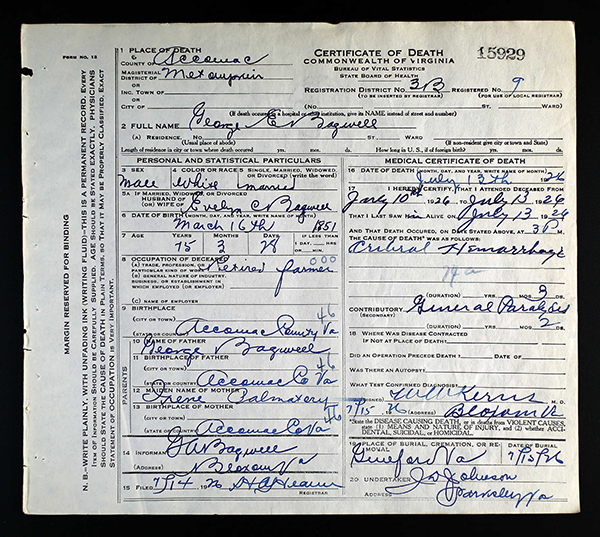 FORM NO. 12
MARGIN RESERVED FOR BINDING
N. B.—WRITE PLAINLY, WITH UNFADING INK (WRITING FLUID)—THIS IS A PERMANENT RECORD. EVERY
ITEM OF INFORMATION SHOULD BE CAREFULLY SUPPLIED. AGE SHOULD BE STATED EXACTLY. PHYSICIANS
SHOULD STATE THE CAUSE OF DEATH IN PLAIN TERMS, SO THAT IT MAY BE PROPERLY CLASSIFIED. EXACT
STATEMENT OF OCCUPATION IS VERY IMPORTANT.
1 PLACE OF DEATH
COUNTY OF Accomac
MAGISTERIAL
DISTRICT OF
OR
INC. TOWN OF
OR
CITY OF
CERTIFICATE OF DEATH
COMMONWEALTH OF VIRGINIA
BUREAU OF VITAL STATISTICS
STATE BOARD OF HEALTH
15929
REGISTRATION DISTRICT NO. 3B REGISTERED NO. 9
(TO BE INSERTED BY REGISTRAR) (FOR USE OF LOCAL REGISTRAR)
ST. WARD)
(If death occurred in a hospital or other institution, give its NAME instead of street and number)
2 FULL NAME George E Bagwell
(A) RESIDENCE. No. ST. WARD
(Usual place of abode) (If non-resident give city or town and State)
Length of residence in city or town where death occurred yrs. mos. ds. How long in U. S., if of foreign birth? yrs. mos. ds.
PERSONAL AND STATISTICAL PARTICULARS
3 SEX 4 COLOR OR RACE 5 SINGLE, MARRIED, WIDOWED OR DIVORCED (write the word)
Male White Married
5A IF MARRIED, WIDOWED OR DIVORCED
HUSBAND OF
(OR) WIFE OF Evelyn C Bagwell
6 DATE OF BIRTH (MONTH, DAY, AND YEAR, WRITE NAME OF MONTH)
March 16th 1851
7 AGE YEARS MONTHS DAYS IF LESS THAN
1 DAY, HRS.
OR MIN.
75 3 28
8 OCCUPATION OF DECEASED
(A) TRADE, PROFESSION, OR
PARTICULAR KIND OF WORK
Retired farmer 000
(B) GENERAL NATURE OF INDUSTRY,
BUSINESS, OR ESTABLISHMENT IN
WHICH EMPLOYED (OR EMPLOYER)
(C) NAME OF EMPLOYER
9 BIRTHPLACE
(CITY OR TOWN)
(STATE OR COUNTRY) Accomac County Va 46
PARENTS
10 NAME OF FATHER
George Bagwell
11 BIRTHPLACE OF FATHER
(CITY OR TOWN)
(STATE OR COUNTRY) Accomac Co Va 46
12 MAIDEN NAME OF MOTHER
13 BIRTHPLACE OF MOTHER
(CITY OR TOWN)
(STATE OR COUNTRY) Accomac Co Va 46
14 INFORMANT Bagwell
(ADDRESS) Bloxom Va
15 FILED 7/14 1926 REGISTRAR
MEDICAL CERTIFICATE OF DEATH
16 DATE OF DEATH (MONTH, DAY, AND YEAR, WRITE NAME OF MONTH)
July 13th 1926
17 I HEREBY CERTIFY, THAT I ATTENDED DECEASED FROM
July 10th 1926 TO July 13 1926
THAT I LAST SAW HIM ALIVE ON July 13 1926
AND THAT DEATH OCCURRED, ON DATE STATED ABOVE, AT 3P M.
THE CAUSE OF DEATH* WAS AS FOLLOWS:
Cerebral Hemorrhage
(DURATION) YRS. MOS. 3 DS.
CONTRIBUTORY General Paralysis
(SECONDARY)
(DURATION) YRS. MOS. 2 DS.
18 WHERE WAS DISEASE CONTRACTED
IF NOT AT PLACE OF DEATH?
DID AN OPERATION PRECEDE DEATH? DATE OF
WAS THERE AN AUTOPSY?
WHAT TEST CONFIRMED DIAGNOSIS?
(SIGNED) Kerns M. D.
7/15 26 (ADDRESS) Bloxom Va
*State the DISEASE CAUSING DEATH, or in deaths from VIOLENT CAUSES,
state (1) MEANS AND NATURE OF INJURY, and (2) whether ACCIDENTAL, SUICIDAL, or HOMICIDAL.
19 PLACE OF BURIAL, CREMATION, OR REMOVAL DATE OF BURIAL
Guilford Va 7/15/26
20 UNDERTAKER Johnson
ADDRESS Parksley Va